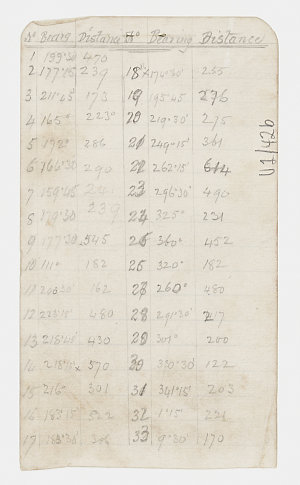 No Bearg Distance No Bearing Distance
1 199°30 470
2 177°15 239 18 174°30' 255
3 211°45 173 19 195°45' 276
4 165° 223° 20 219°30' 275
5 192° 286 21 249°15' 361
6 166°30 290 22 262°15' 614
7 159°45 23 296°30' 490
8 179°30 239 24 325° 221
9 177°30 545 25 360° 452
10 111° 182 26 320° 182
11 162 260° 480
12 480 28 217
13 218°45' 430 301° 200
14 570 30 122
15 216° 301 31 341°15' 203
16 183°15 522 32 1°15' 221
17 33 9°30' 170
U1/426